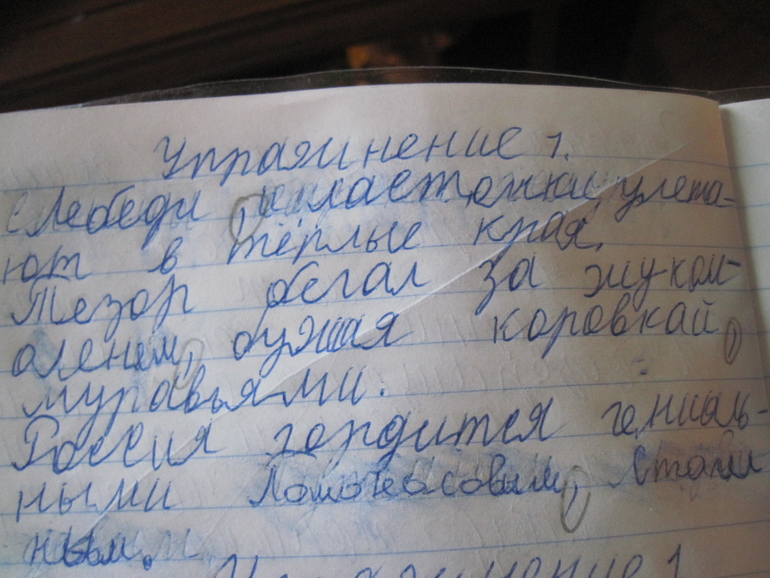 Упражнение 1.
Лебеди, и ласточки улета-
ют в тёплые края.
Тезор бегал за жуком-
оленем, божья коровкай,
муравьями.
Россия гордится гениаль-
ными Ломонасовым, Стали
ным.
Упражнение 1